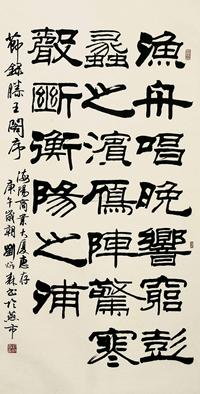 漁舟唱晚響窮彭
蠡之濱鴈陣驚寒
聲斷衡陽之浦
節錄滕王閣序
陽商業大廈惠存
庚午歲朝劉炳森書於燕市